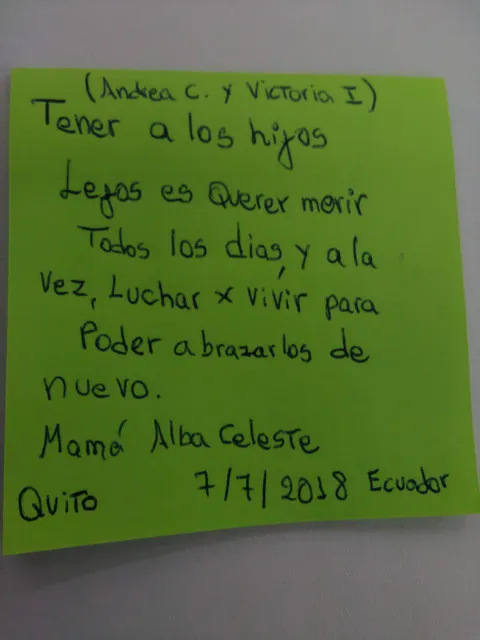 (Andrea C. y Victoria I)
Tener a los hijos
Lejos es Querer morir
Todos los dias, y a la
vez, Luchar x vivir para
Poder abrazarlos de
nuevo.
Mamá Alba Celeste
Quito 7/7/2018 Ecuador